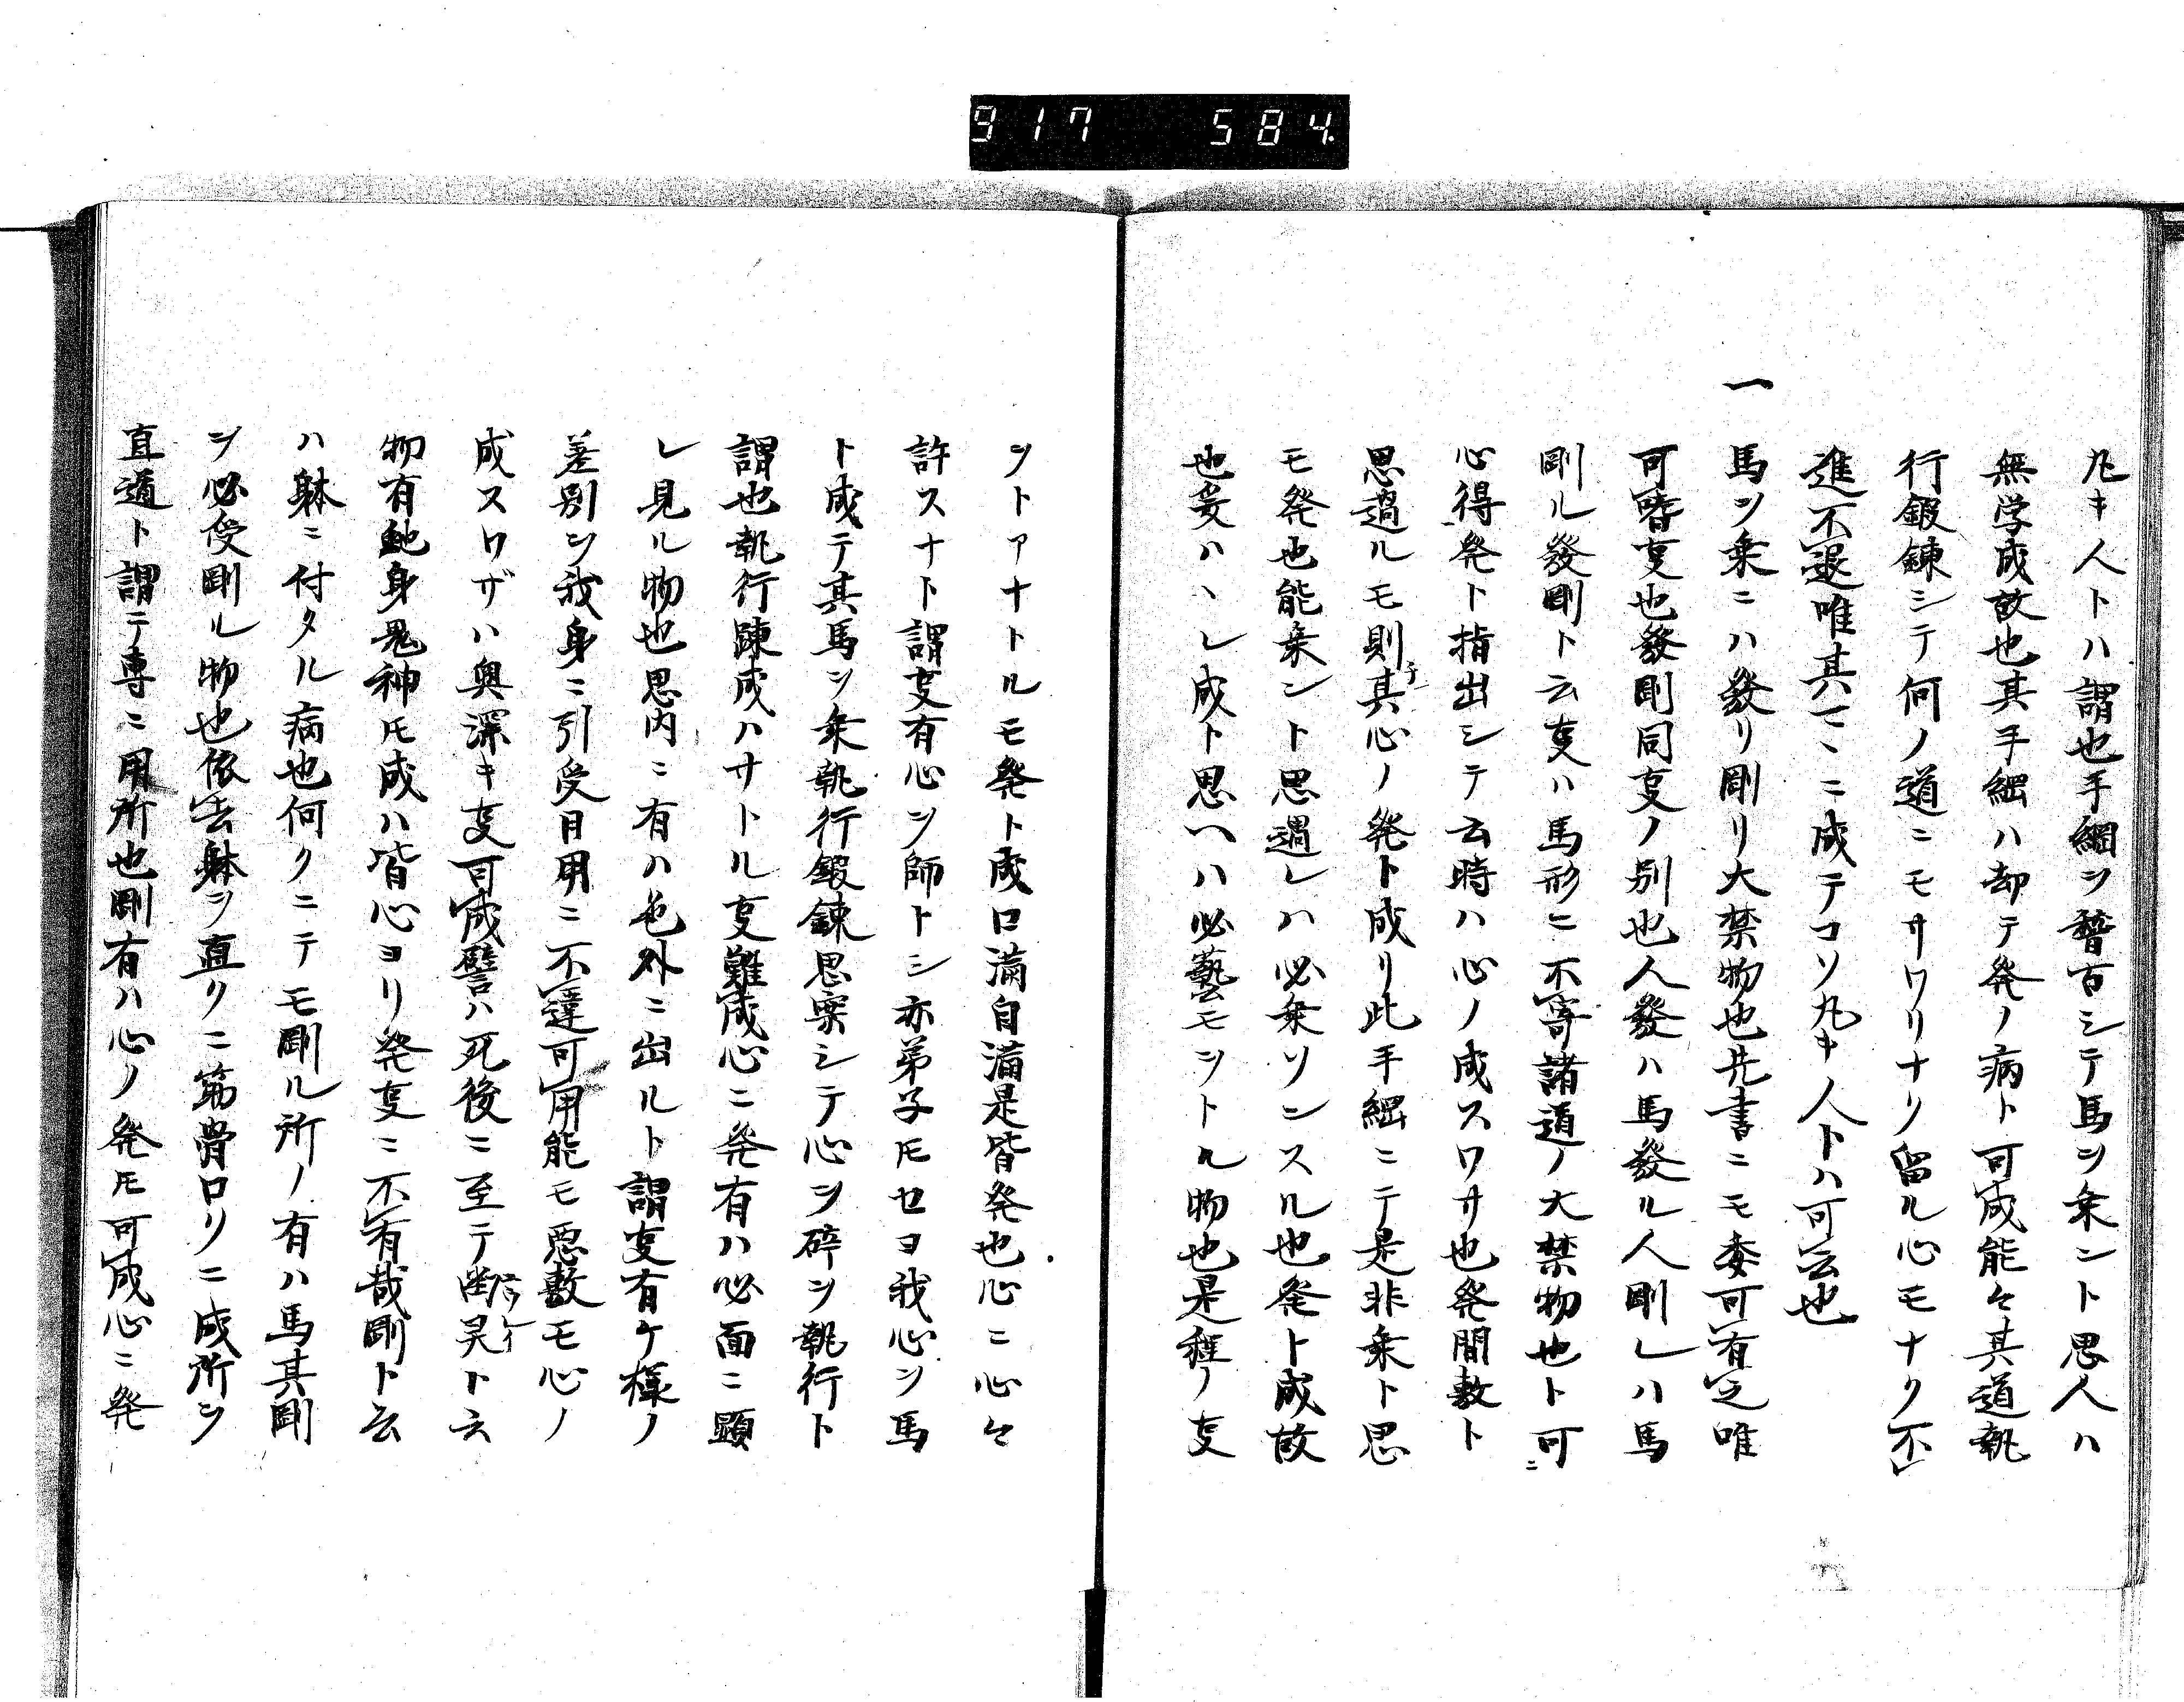 917 584
丸キ人トハ謂也手綱ヲ稽古シテ馬ヲ乗ント思人ハ
無学成故也其手綱ハ却テ発ノ病ト可成能々其道執
行鍛錬シテ何ノ道ニモサワリナク留ル心モナク不
進不退唯其マヽニ成テコソ丸キ人トハ可云也
一 馬ヲ乗ニハ發リ剛リ大禁物也先書ニモ委可有之唯
可嗜叓也發剛同叓ノ別也人發ハ馬發ル人剛レハ馬
剛ル發剛ト云叓ハ馬形ニ不寄諸道ノ大禁物也ト可
心得発ト指出シテ云時ハ心ノ成スワサ也発間敷ト
思過ルモ則其心ノ発ト成リ此手綱ニテ是非乗ト思
モ発也能乗ント思過レハ必乗ソンスル也発ト成故
也爰ハヽレ成ト思ヘハ必藝モヲトル物也是程ノ叓
ヲトアナトルモ発ト成口満自満是皆発也心ニ心々
許スナト謂叓有心ヲ師トシ亦弟子トモセヨ我心ヲ馬
ト成テ其馬ヲ乗執行鍛錬思案シテ心ヲ砕ヲ執行ト
謂也執行踈成ハサトル叓難成心ニ発有ハ必面ニ顕
レ見ル物也思内ニ有ハ色外ニ出ルト謂叓有ケ様ノ
差別ヲ我身ニ引受目用ニ不違可用能モ悪敷モ心ノ
成スワザハ奥深キ叓可成譬ハ死後ニ至テ幽㚑ト云
物有虵身鬼神トモ成ハ皆心ヨリ発叓ニ不有哉剛ト云
ハ躰ニ付タル病也何クニテモ剛ル所ノ有ハ馬其剛
ヲ必受剛ル物也依去躰ヲ直リニ筋骨ロリニ成所ヲ
直道ト謂テ専ニ用所也剛有ハ心ノ発トモ可成心ニ発